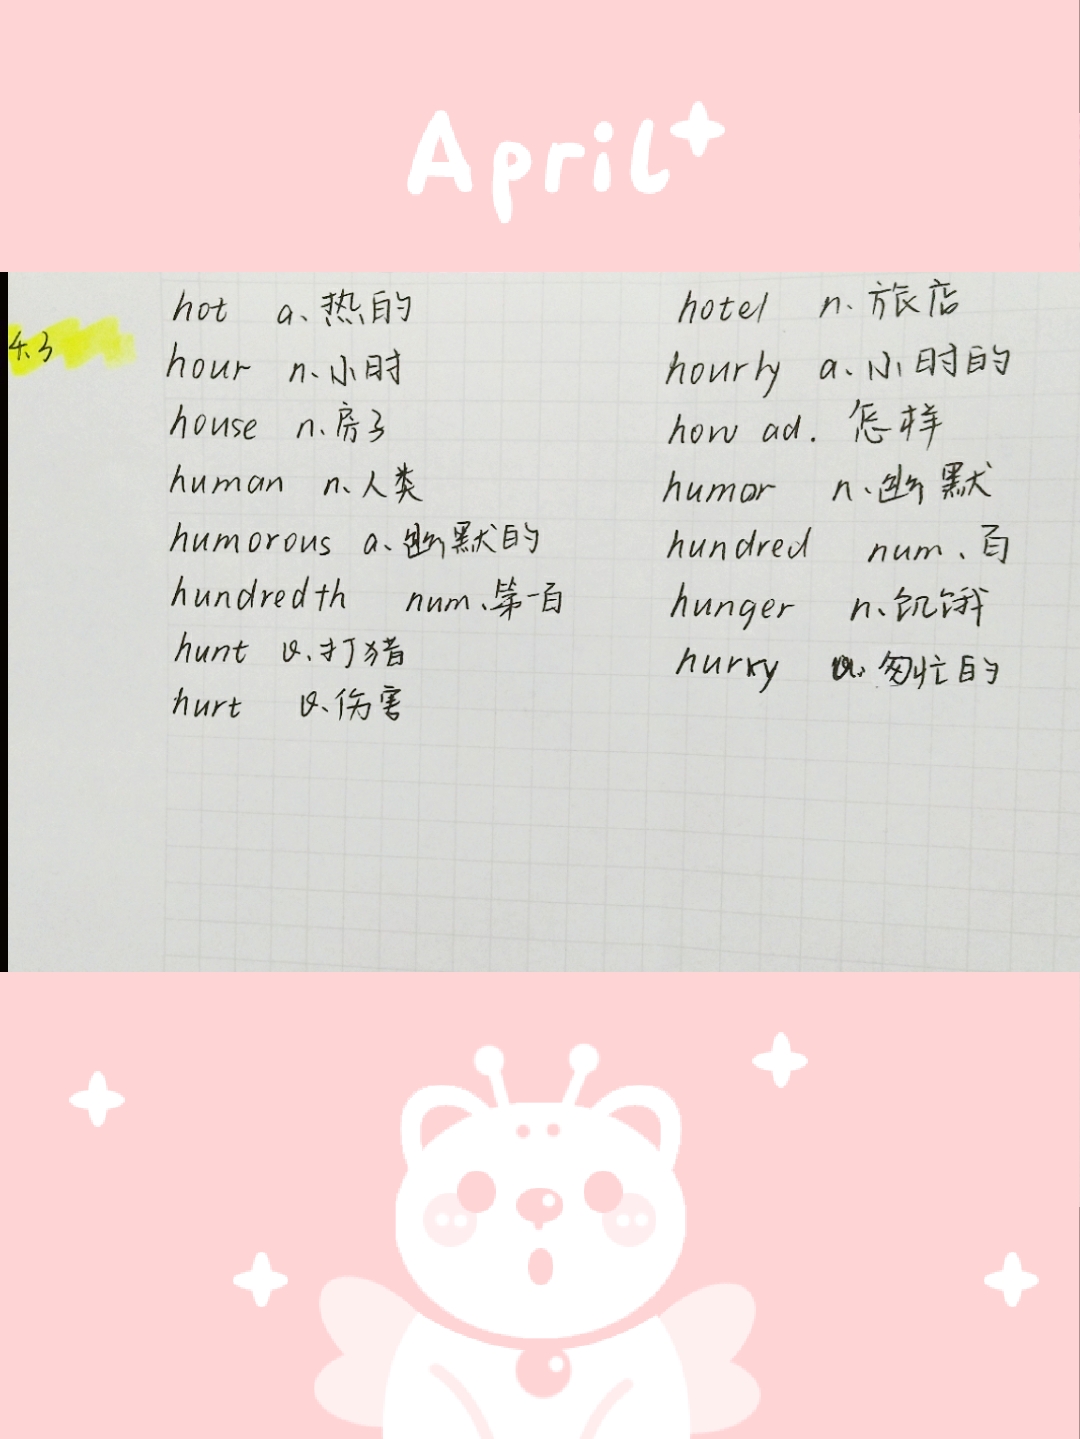 April
4.3
hot a.热的 hotel n.旅店
hour n.小时 hourly a.小时的
house n.房子 how ad.怎样
human n.人类 humor n.幽默
humorous a.幽默的 hundred num.百
hundredth num.第一百 hunger n.饥饿
hunt v.打猎 hurry a.匆忙的
hurt v.伤害